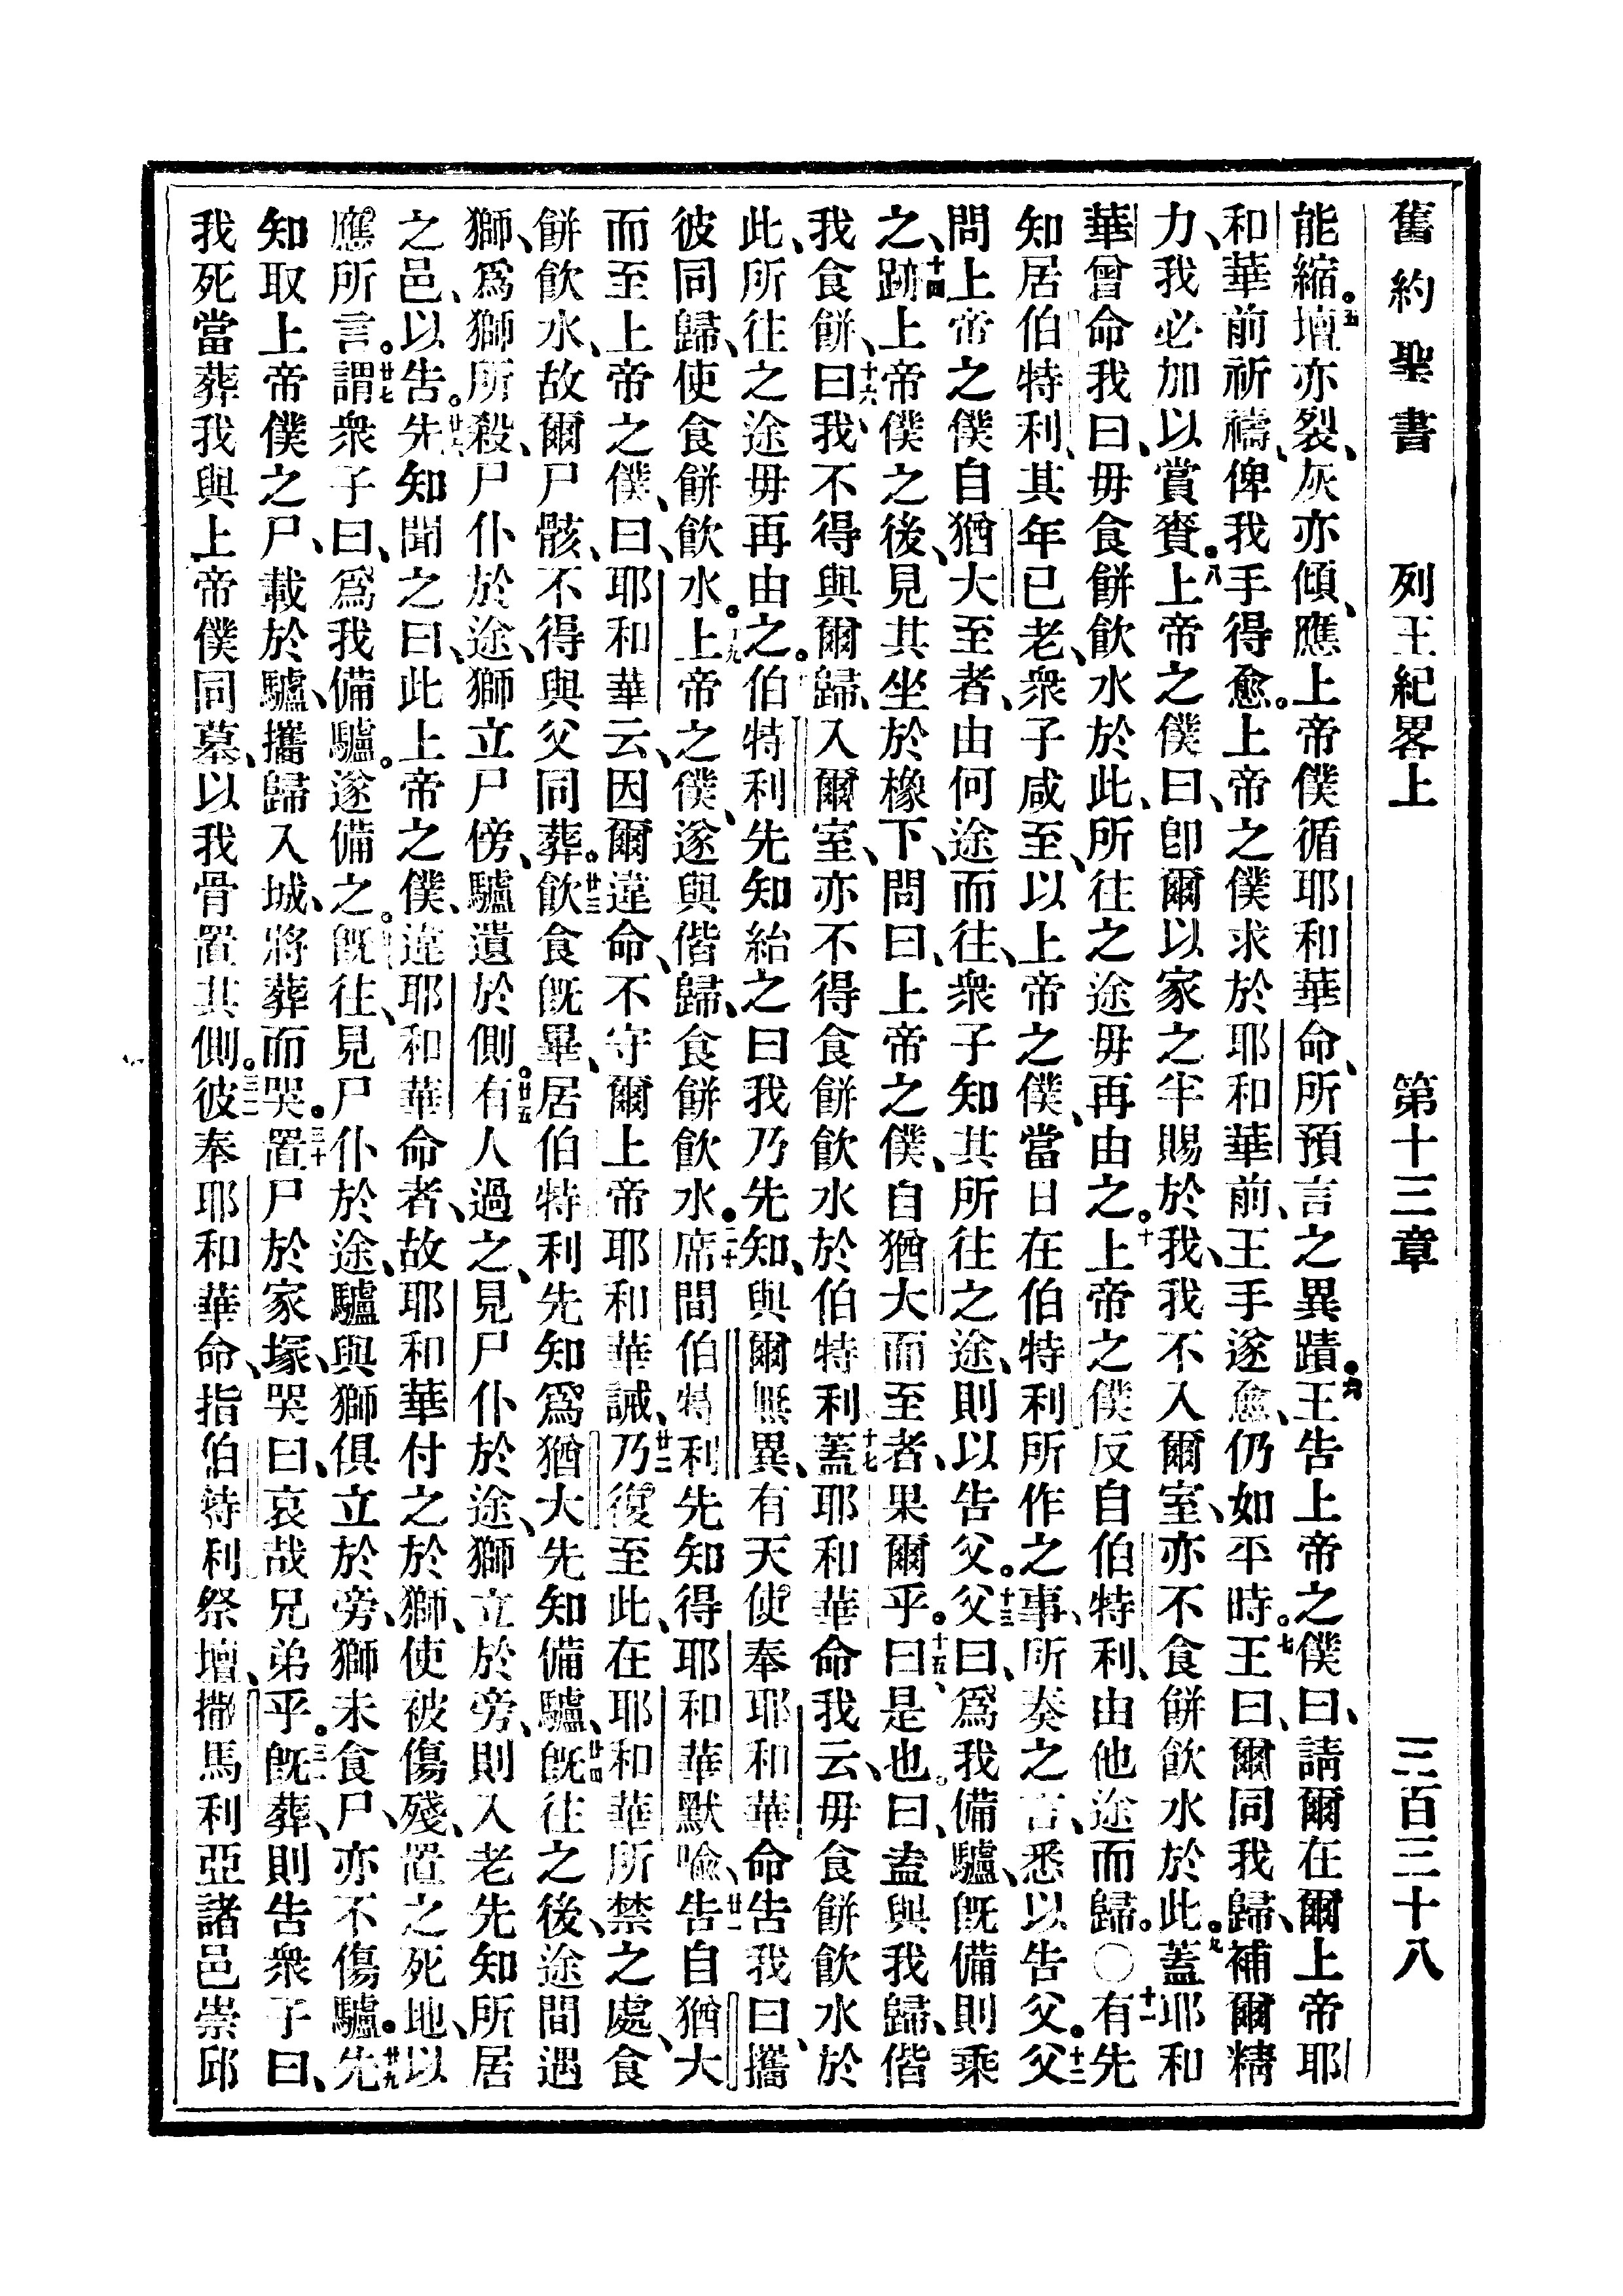 舊約聖書 列王紀畧上 第十三章 三百三十八
能縮。五壇亦裂、灰亦傾、應上帝僕循耶和華命、所預言之異蹟。六王告上帝之僕曰、請爾在爾上帝耶
和華前祈禱、俾我手得愈。上帝之僕求於耶和華前、王手遂愈、仍如平時。七王曰、爾同我歸、補爾精
力、我必加以賞賚。八上帝之僕曰、卽爾以家之半賜於我、我不入爾室、亦不食餅飲水於此。九蓋耶和
華曾命我曰、毋食餅飲水於此、所往之途毋再由之。十上帝之僕反自伯特利、由他途而歸。〇十一有先
知居伯特利、其年已老、衆子咸至、以上帝之僕、當日在伯特利所作之事、所奏之言、悉以告父。十二父
問上帝之僕自猶大至者、由何途而往、衆子知其所往之途、則以告父。十三父曰、爲我備驢、旣備則乘
之、十四跡上帝僕之後、見其坐於橡下、問曰、上帝之僕、自猶大而至者、果爾乎。十五曰、是也。曰盍與我歸、偕
我食餅、十六曰、我不得與爾歸、入爾室、亦不得食餅飲水於伯特利、十七蓋耶和華命我云、毋食餅飲水於
此、所往之途毋再由之。伯特利先知紿之曰我乃先知、與爾無異、有天使奉耶和華命告我曰、攜
彼同歸、使食餅飲水。十九上帝之僕、遂與偕歸、食餅飲水。二十席間伯特利先知得耶和華默喩、廿一告自猶大
而至上帝之僕、曰、耶和華云、因爾違命、不守爾上帝耶和華誡、廿二乃復至此、在耶和華所禁之處、食
餅飲水、故爾尸骸、不得與父同葬。廿三飲食旣畢、居伯特利先知爲猶大先知備驢、廿四旣往之後、途間遇
獅、爲獅所殺、尸仆於途、獅立尸傍、驢遺於側。廿五有人過之、見尸仆於途、獅立於旁、則入老先知所居
之邑、以告。廿六先知聞之曰、此上帝之僕、違耶和華命者、故耶和華付之於獅、使被傷殘、置之死地、以
應所言。廿七謂衆子曰、爲我備驢。遂備之。旣往、見尸仆於途、驢與獅俱立於旁、獅未食尸、亦不傷驢。廿九先
知取上帝僕之尸、載於驢、攜歸入城、將葬而哭。三十置尸於家塚、哭曰、哀哉兄弟乎。三一旣葬、則告衆子曰、
我死當葬我與上帝僕同墓、以我骨置其側。三二彼奉耶和華命、指伯特利祭壇、撒馬利亞諸邑崇邱